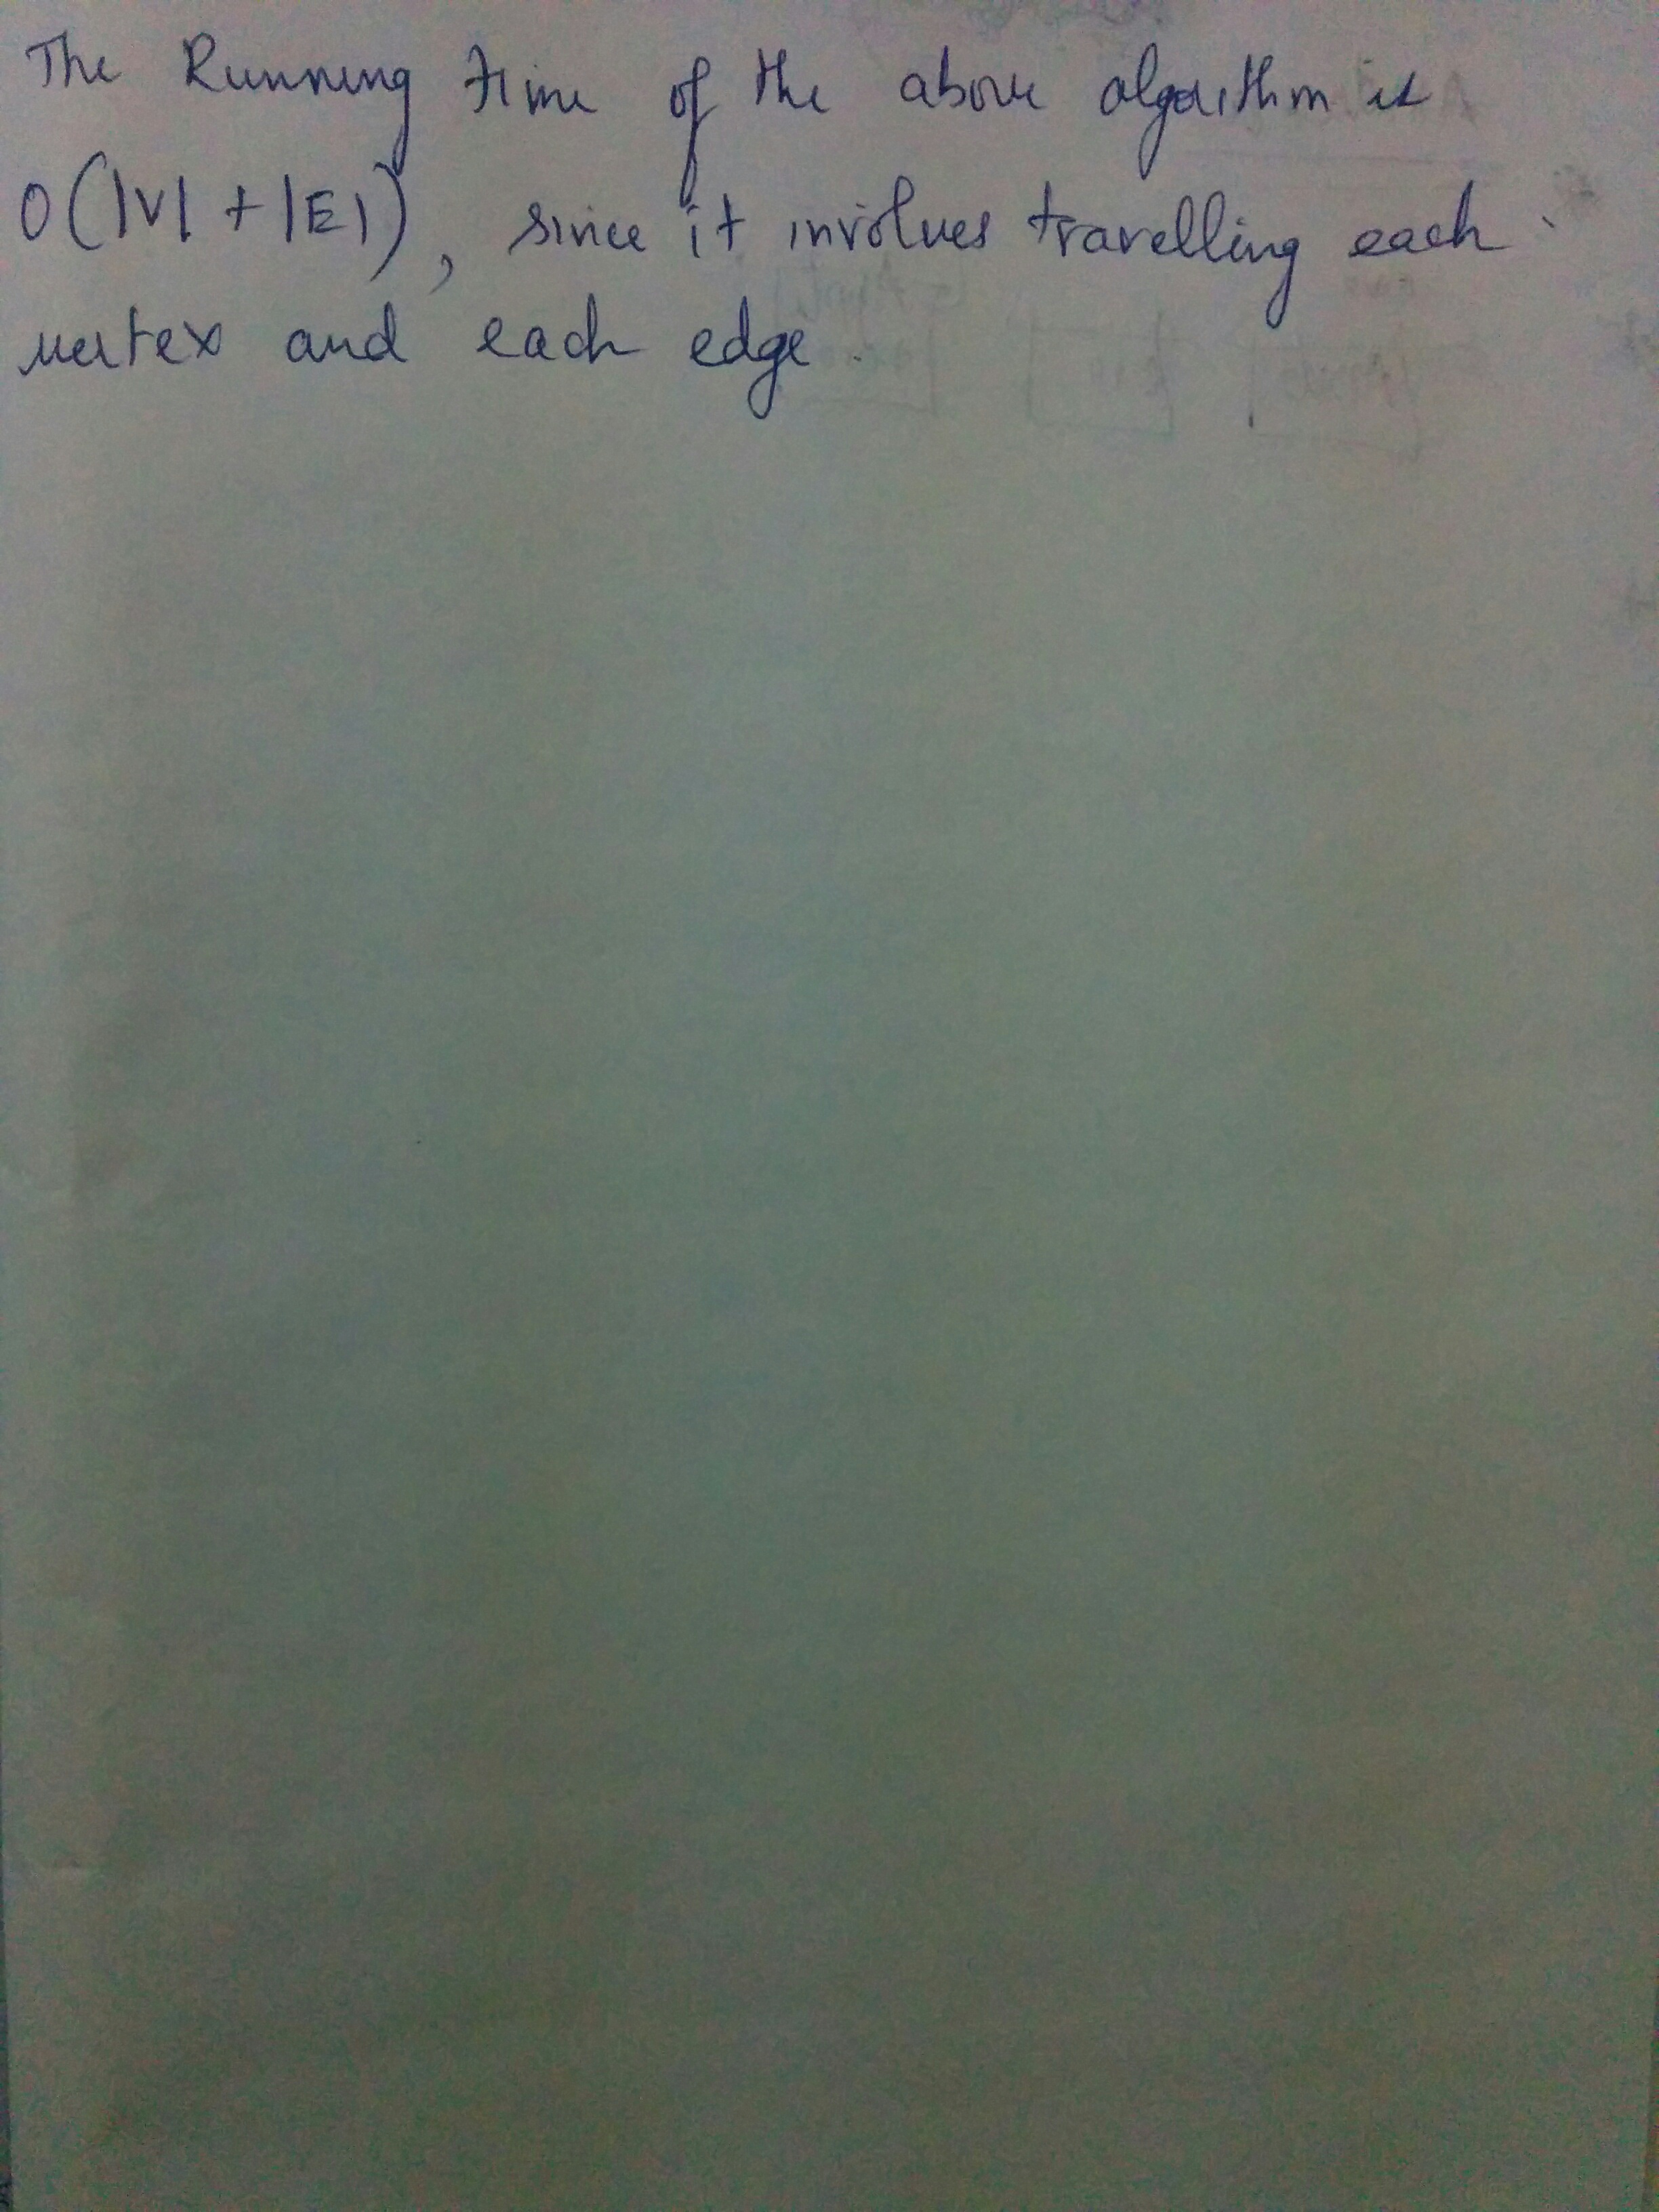 The Running time of the above algorithm is
O(|V| + |E|), since it involves travelling each
vertex and each edge.